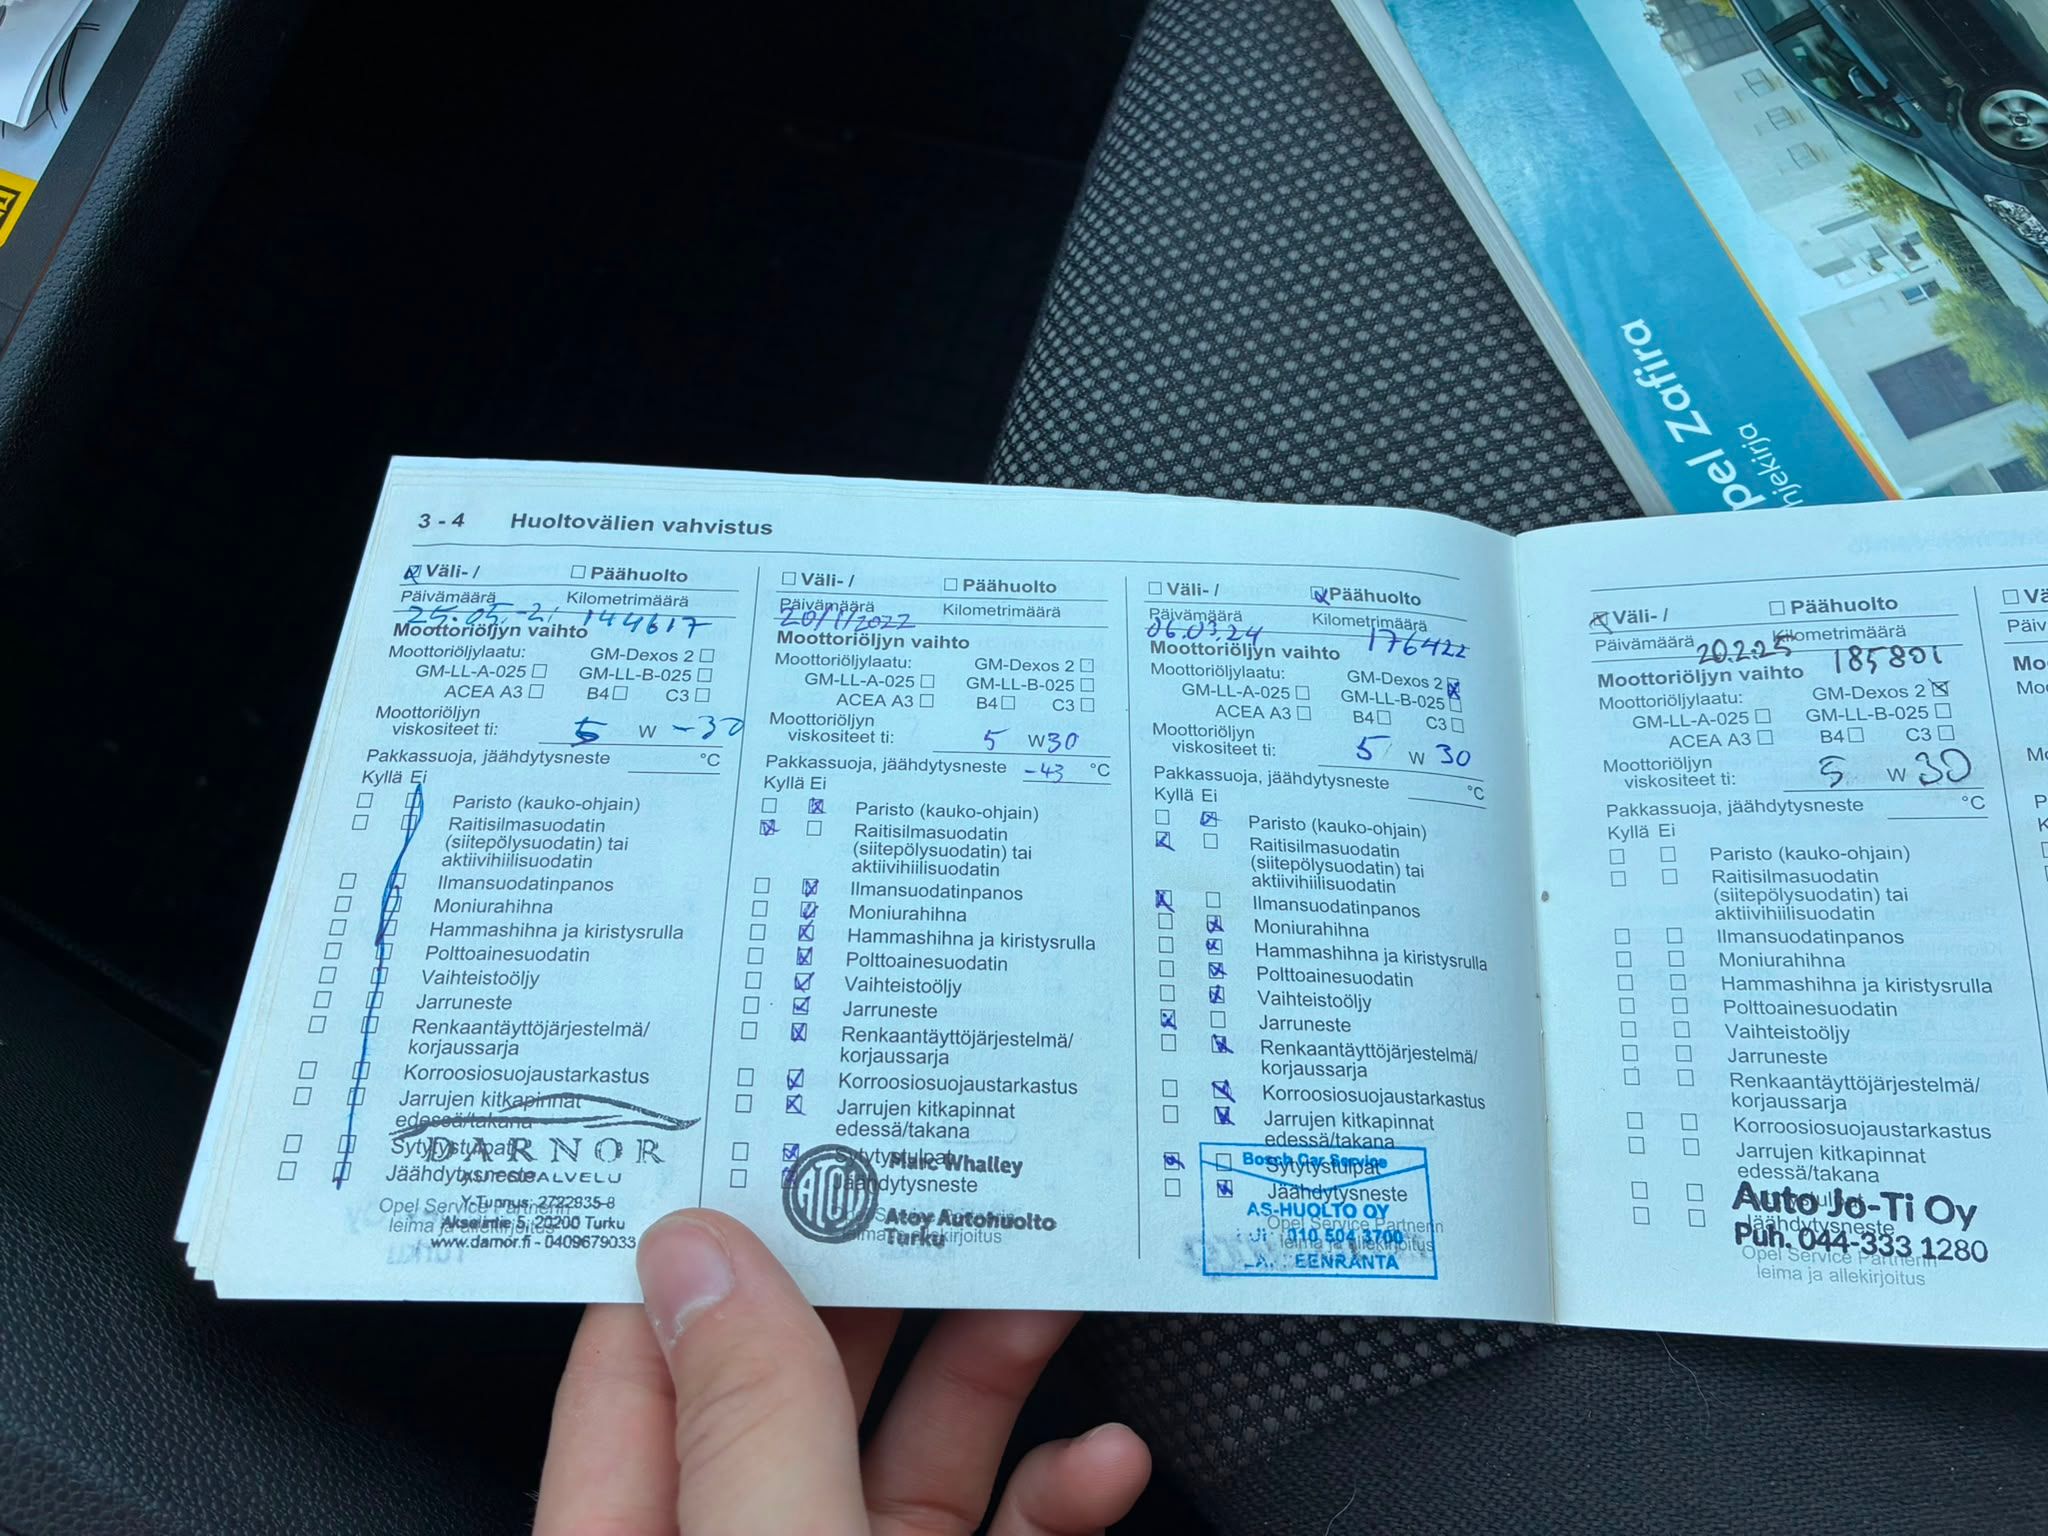 3 - 4 Huoltovälien vahvistus
Väli- / Päähuolto
Päivämäärä Kilometrimäärä
25.05.-21 144617
Moottoriöljyn vaihto
Moottoriöljylaatu: GM-Dexos 2
GM-LL-A-025 GM-LL-B-025
ACEA A3 B4 C3
Moottoriöljyn
viskositeet ti: 5 W -30
Pakkassuoja, jäähdytysneste °C
Kyllä Ei
Paristo (kauko-ohjain)
Raitisilmasuodatin
(siitepölysuodatin) tai
aktiivihiilisuodatin
Ilmansuodatinpanos
Moniurahihna
Hammashihna ja kiristysrulla
Polttoainesuodatin
Vaihteistoöljy
Jarruneste
Renkaantäyttöjärjestelmä/
korjaussarja
Korroosiosuojaustarkastus
Jarrujen kitkapinnat
edessä/takana
Sytytystulpat
DARNOR
Jäähdytysneste
Y-Tunnus: 2722835-8
Opel Service Partnerin
20200 Turku
leima ja allekirjoitus
www.darnor.fi - 0409679033
Väli- / Päähuolto
Päivämäärä Kilometrimäärä
20/1/2022
Moottoriöljyn vaihto
Moottoriöljylaatu: GM-Dexos 2
GM-LL-A-025 GM-LL-B-025
ACEA A3 B4 C3
Moottoriöljyn
viskositeet ti: 5 W 30
Pakkassuoja, jäähdytysneste -43 °C
Kyllä Ei
Paristo (kauko-ohjain)
Raitisilmasuodatin
(siitepölysuodatin) tai
aktiivihiilisuodatin
Ilmansuodatinpanos
Moniurahihna
Hammashihna ja kiristysrulla
Polttoainesuodatin
Vaihteistoöljy
Jarruneste
Renkaantäyttöjärjestelmä/
korjaussarja
Korroosiosuojaustarkastus
Jarrujen kitkapinnat
edessä/takana
Sytytystulpat
ATOY
Marc Whalley
Jäähdytysneste
Atoy Autohuolto
Turku
allekirjoitus
Väli- / Päähuolto
Päivämäärä Kilometrimäärä
06.03.24 176422
Moottoriöljyn vaihto
Moottoriöljylaatu: GM-Dexos 2
GM-LL-A-025 GM-LL-B-025
ACEA A3 B4 C3
Moottoriöljyn
viskositeet ti: 5 W 30
Pakkassuoja, jäähdytysneste °C
Kyllä Ei
Paristo (kauko-ohjain)
Raitisilmasuodatin
(siitepölysuodatin) tai
aktiivihiilisuodatin
Ilmansuodatinpanos
Moniurahihna
Hammashihna ja kiristysrulla
Polttoainesuodatin
Vaihteistoöljy
Jarruneste
Renkaantäyttöjärjestelmä/
korjaussarja
Korroosiosuojaustarkastus
Jarrujen kitkapinnat
edessä/takana
Bosch Car Service
Sytytystulpat
Jäähdytysneste
AS-HUOLTO OY
Opel Service Partnerin
010 504 3700
leima ja allekirjoitus
EENRANTA
Väli- / Päähuolto
Päivämäärä Kilometrimäärä
20.2.25 185801
Moottoriöljyn vaihto
Moottoriöljylaatu: GM-Dexos 2
GM-LL-A-025 GM-LL-B-025
ACEA A3 B4 C3
Moottoriöljyn
viskositeet ti: 5 W 30
Pakkassuoja, jäähdytysneste °C
Kyllä Ei
Paristo (kauko-ohjain)
Raitisilmasuodatin
(siitepölysuodatin) tai
aktiivihiilisuodatin
Ilmansuodatinpanos
Moniurahihna
Hammashihna ja kiristysrulla
Polttoainesuodatin
Vaihteistoöljy
Jarruneste
Renkaantäyttöjärjestelmä/
korjaussarja
Korroosiosuojaustarkastus
Jarrujen kitkapinnat
edessä/takana
Auto Jo-Ti Oy
Jäähdytysneste
Puh. 044-333 1280
Opel Service Partnerin
leima ja allekirjoitus
pel Zafira
hjekirja